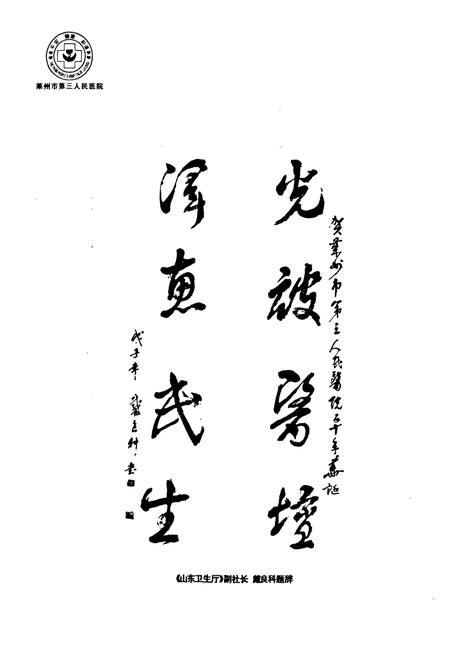 莱州市第三人民医院
贺莱州市第三人民醫院五十年華诞
光被醫壇
澤惠民生
戊子年
《山东卫生厅》副社长 戴良科题辞